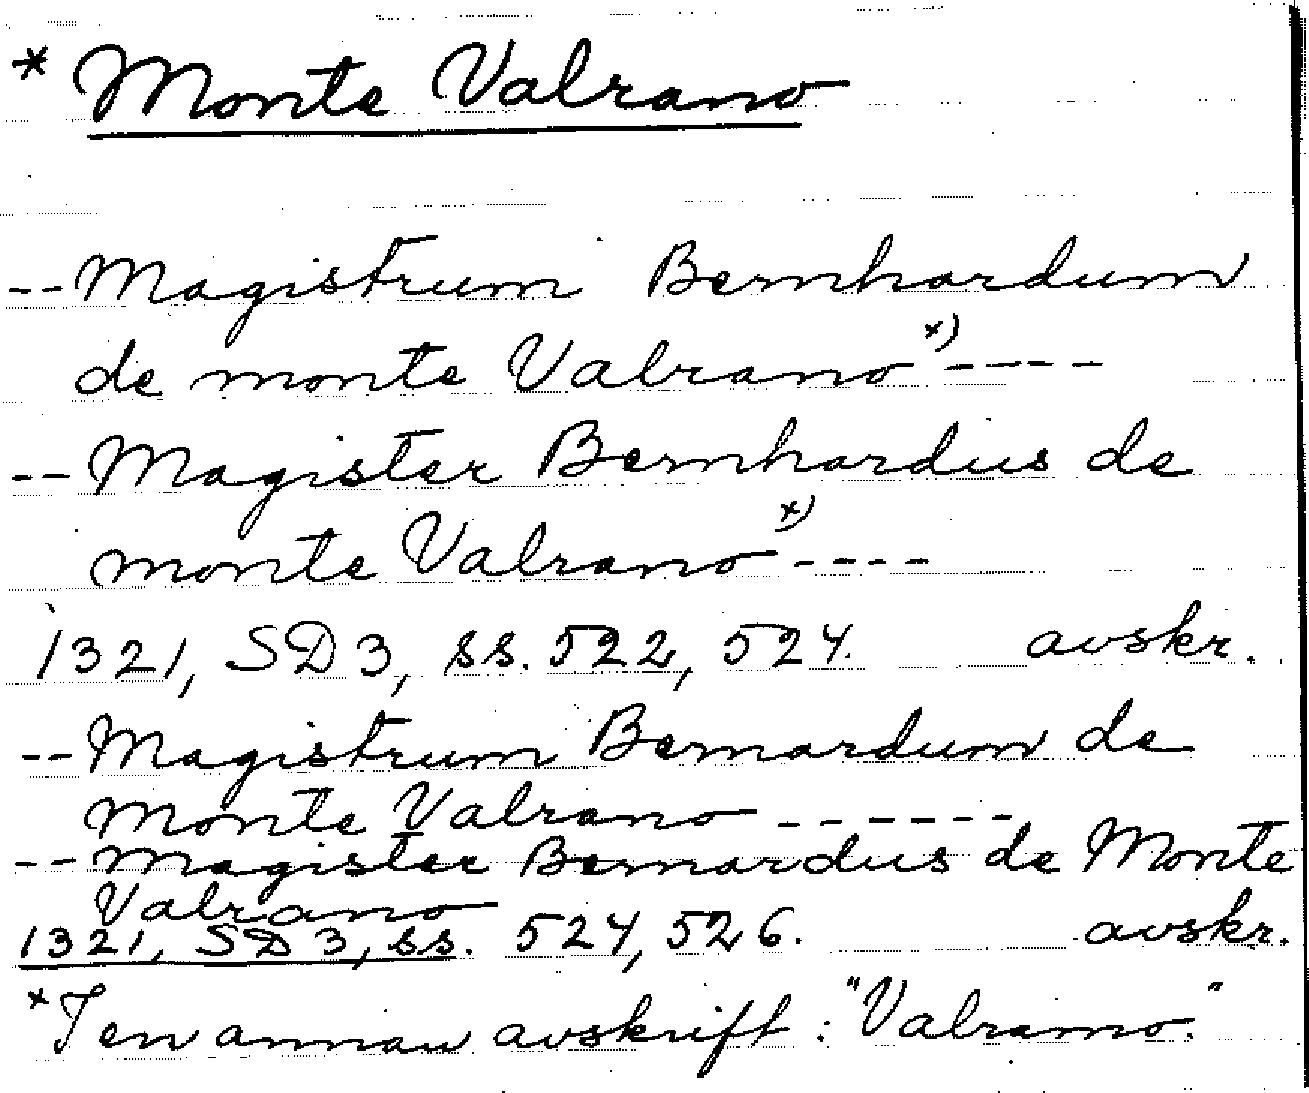 * Monte Valrano
-- Magistrum Bernhardum
de monte Valrano x) ----
-- Magister Bernhardus de
monte Valrano x) ----
1321, SD 3, ss. 522, 524. avskr.
-- Magistrum Bernardum de
Monte Valrano ------
-- Magister Bernardus de Monte
Valrano
1321, SD 3, ss. 524, 526. avskr.
* I en annan avskrift: "Valramo."